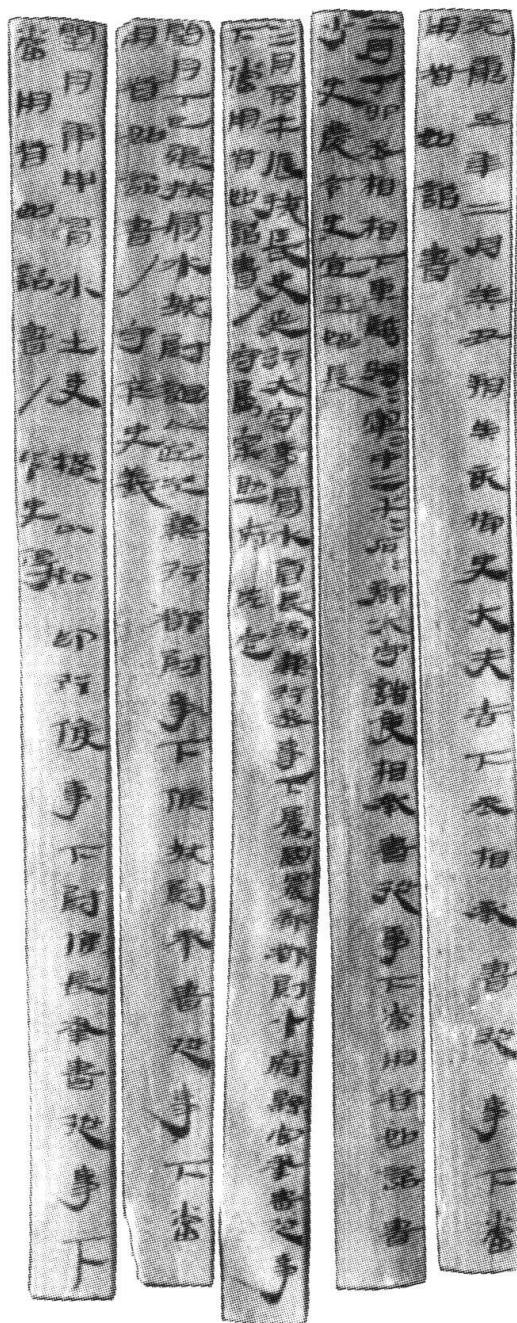 元康五年二月癸丑朔癸亥御史大夫吉下丞相承書從事下當
用者如詔書
二月丁卯丞相相下車騎將=軍=中二=千=石=郡大守諸侯相承書從事下當用者如詔書
少史慶令史宜王始長
三月丙午張掖長史延行大守事肩水倉長湯兼行丞事下屬國農部都尉小府縣官承書從事
下當用者如詔書／守屬宗助府佐定
閏月丁巳張掖肩水城尉誼以近次兼行都尉事下候城尉承書從事下當
用者如詔書／守卒史義
閏月庚申肩水士吏橫以私印行候事下尉候長承書從事下
當用者如詔書／令史得